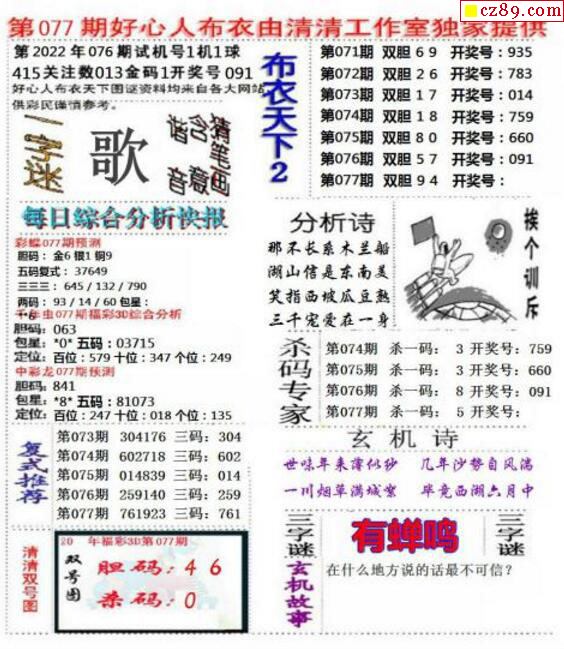 cz89.com
第077期好心人布衣由清清工作室独家提供
第2022年076期试机号1机1球
415关注数013金码1开奖号091
好心人布衣天下图谜资料均来自各大网站
供彩民谨慎参考。
一字迷
歌
谐音
含意
猜笔画
每日综合分析快报
彩蝶077期预测
胆码：金6银1铜9
五码复式：37649
三三三：645/132/790
两码：93/14/60包星：
*6
千年虫077期福彩3D综合分析
胆码：063
包星：*0*五码：03715
定位：百位：579十位：347个位：249
中彩龙077期预测
胆码：841
包星：*8*五码：81073
定位：百位：247十位：018个位：135
复式推荐
第073期 304176 三码：304
第074期 602718 三码：602
第075期 014839 三码：014
第076期 259140 三码：259
第077期 761923 三码：761
清清双号图
20 年福彩3D第077期
双号图
胆码：46
杀码：0
布衣天下2
第071期 双胆69 开奖号：935
第072期 双胆26 开奖号：783
第073期 双胆17 开奖号：014
第074期 双胆18 开奖号：759
第075期 双胆80 开奖号：660
第076期 双胆57 开奖号：091
第077期 双胆94 开奖号：
分析诗
那不长系木兰船
湖山信是东南美
笑指西坡瓜豆熟
三千宠爱在一身
挨个训斥
杀码专家
第074期 杀一码： 3开奖号：759
第075期 杀一码： 3开奖号：660
第076期 杀一码： 8开奖号：091
第077期 杀一码： 5开奖号：
玄机诗
世味年来薄似纱 几年沙势自风湍
一川烟草满城絮 毕竟西湖六月中
三字谜
有蝉鸣
三字谜
玄机故事
在什么地方说的话最不可信？